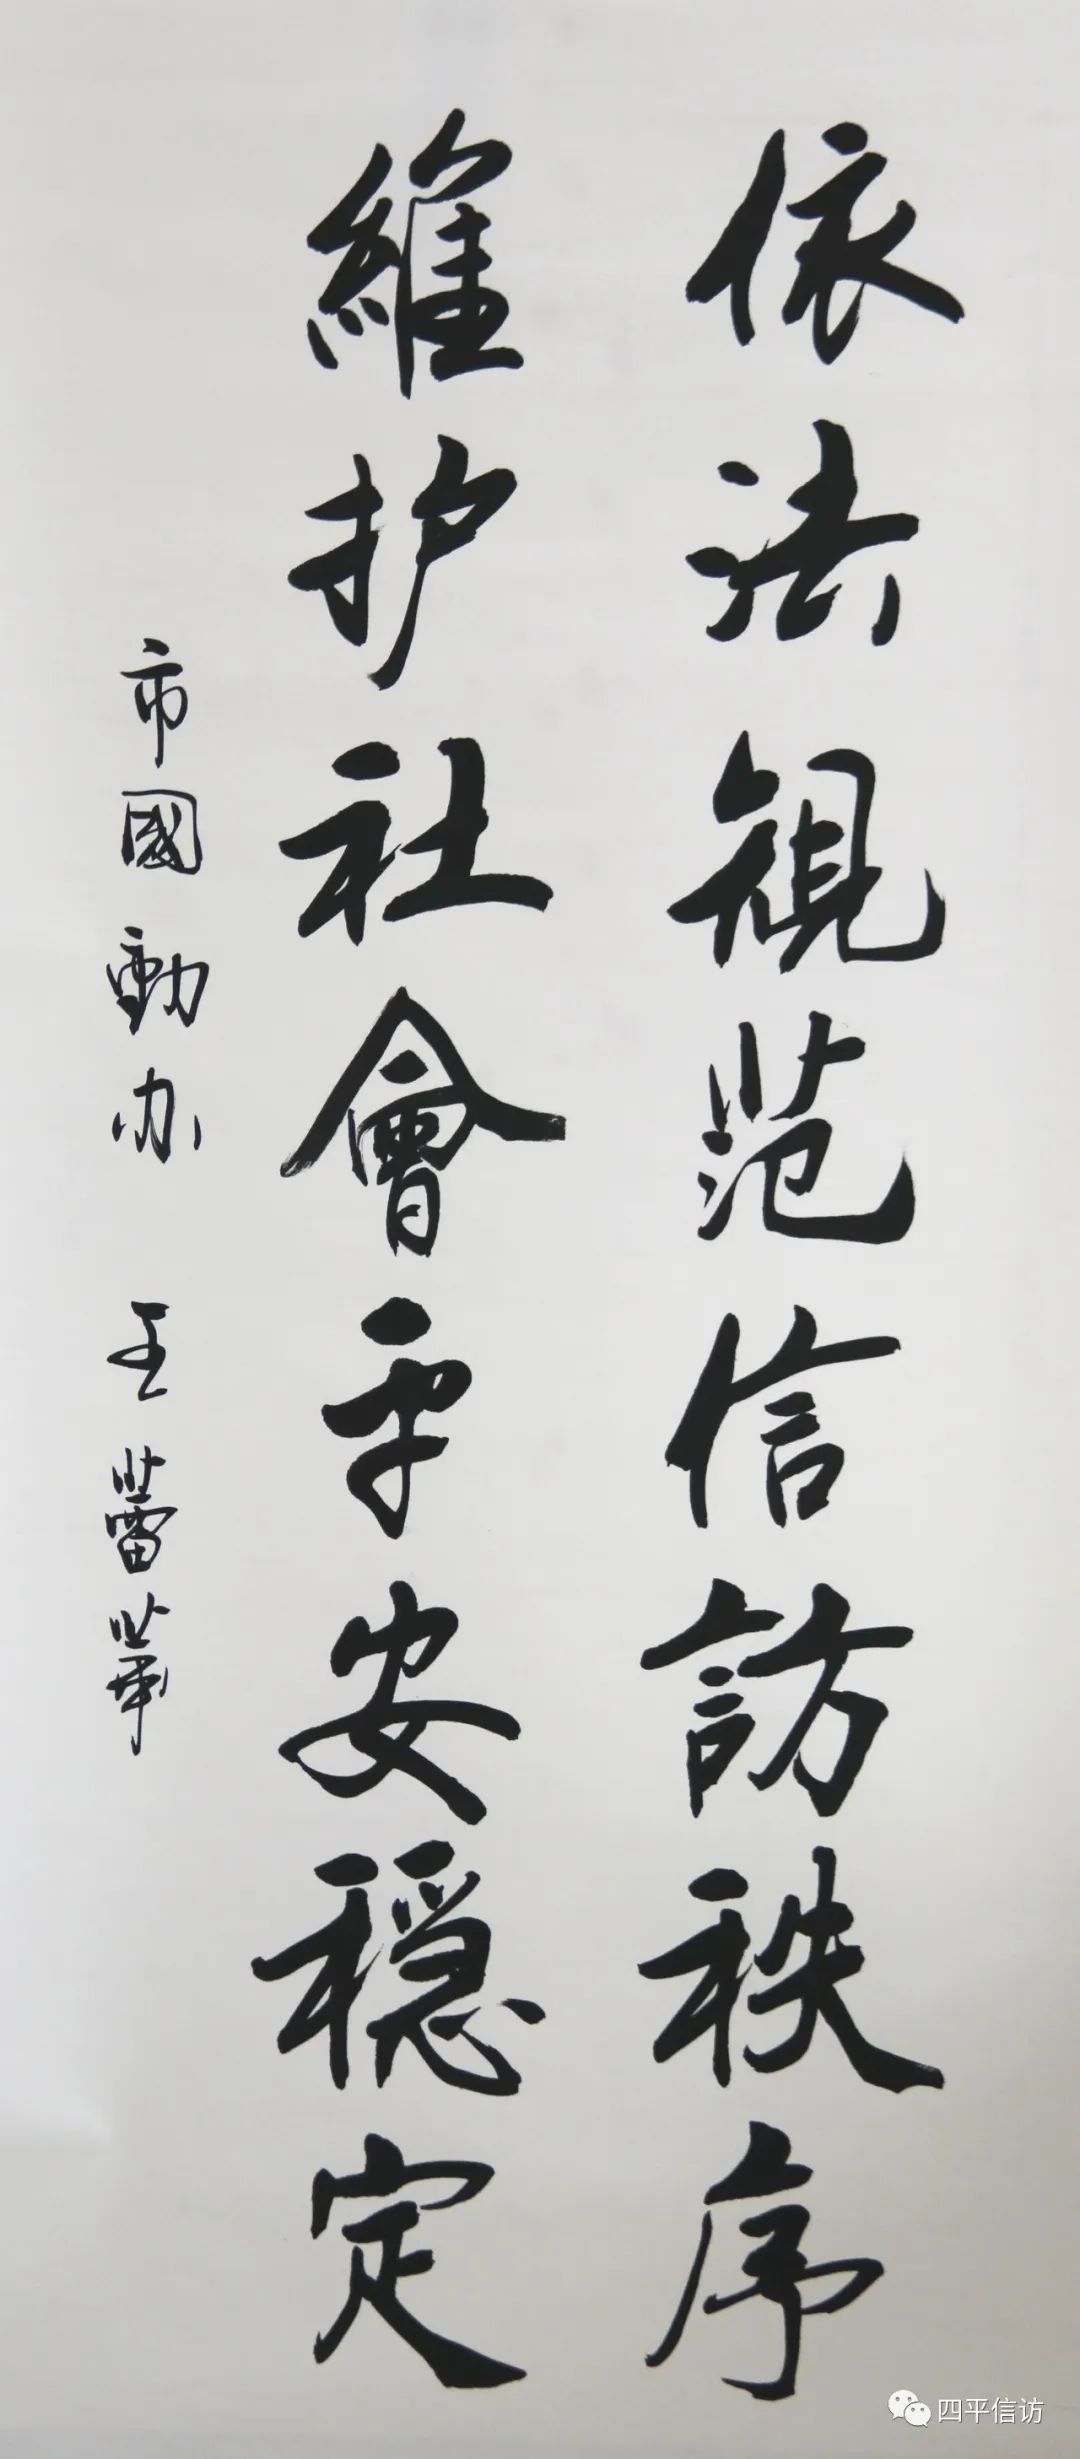 依法規范信訪秩序
維护社會平安穏定
市國動办 王蕾華
四平信访